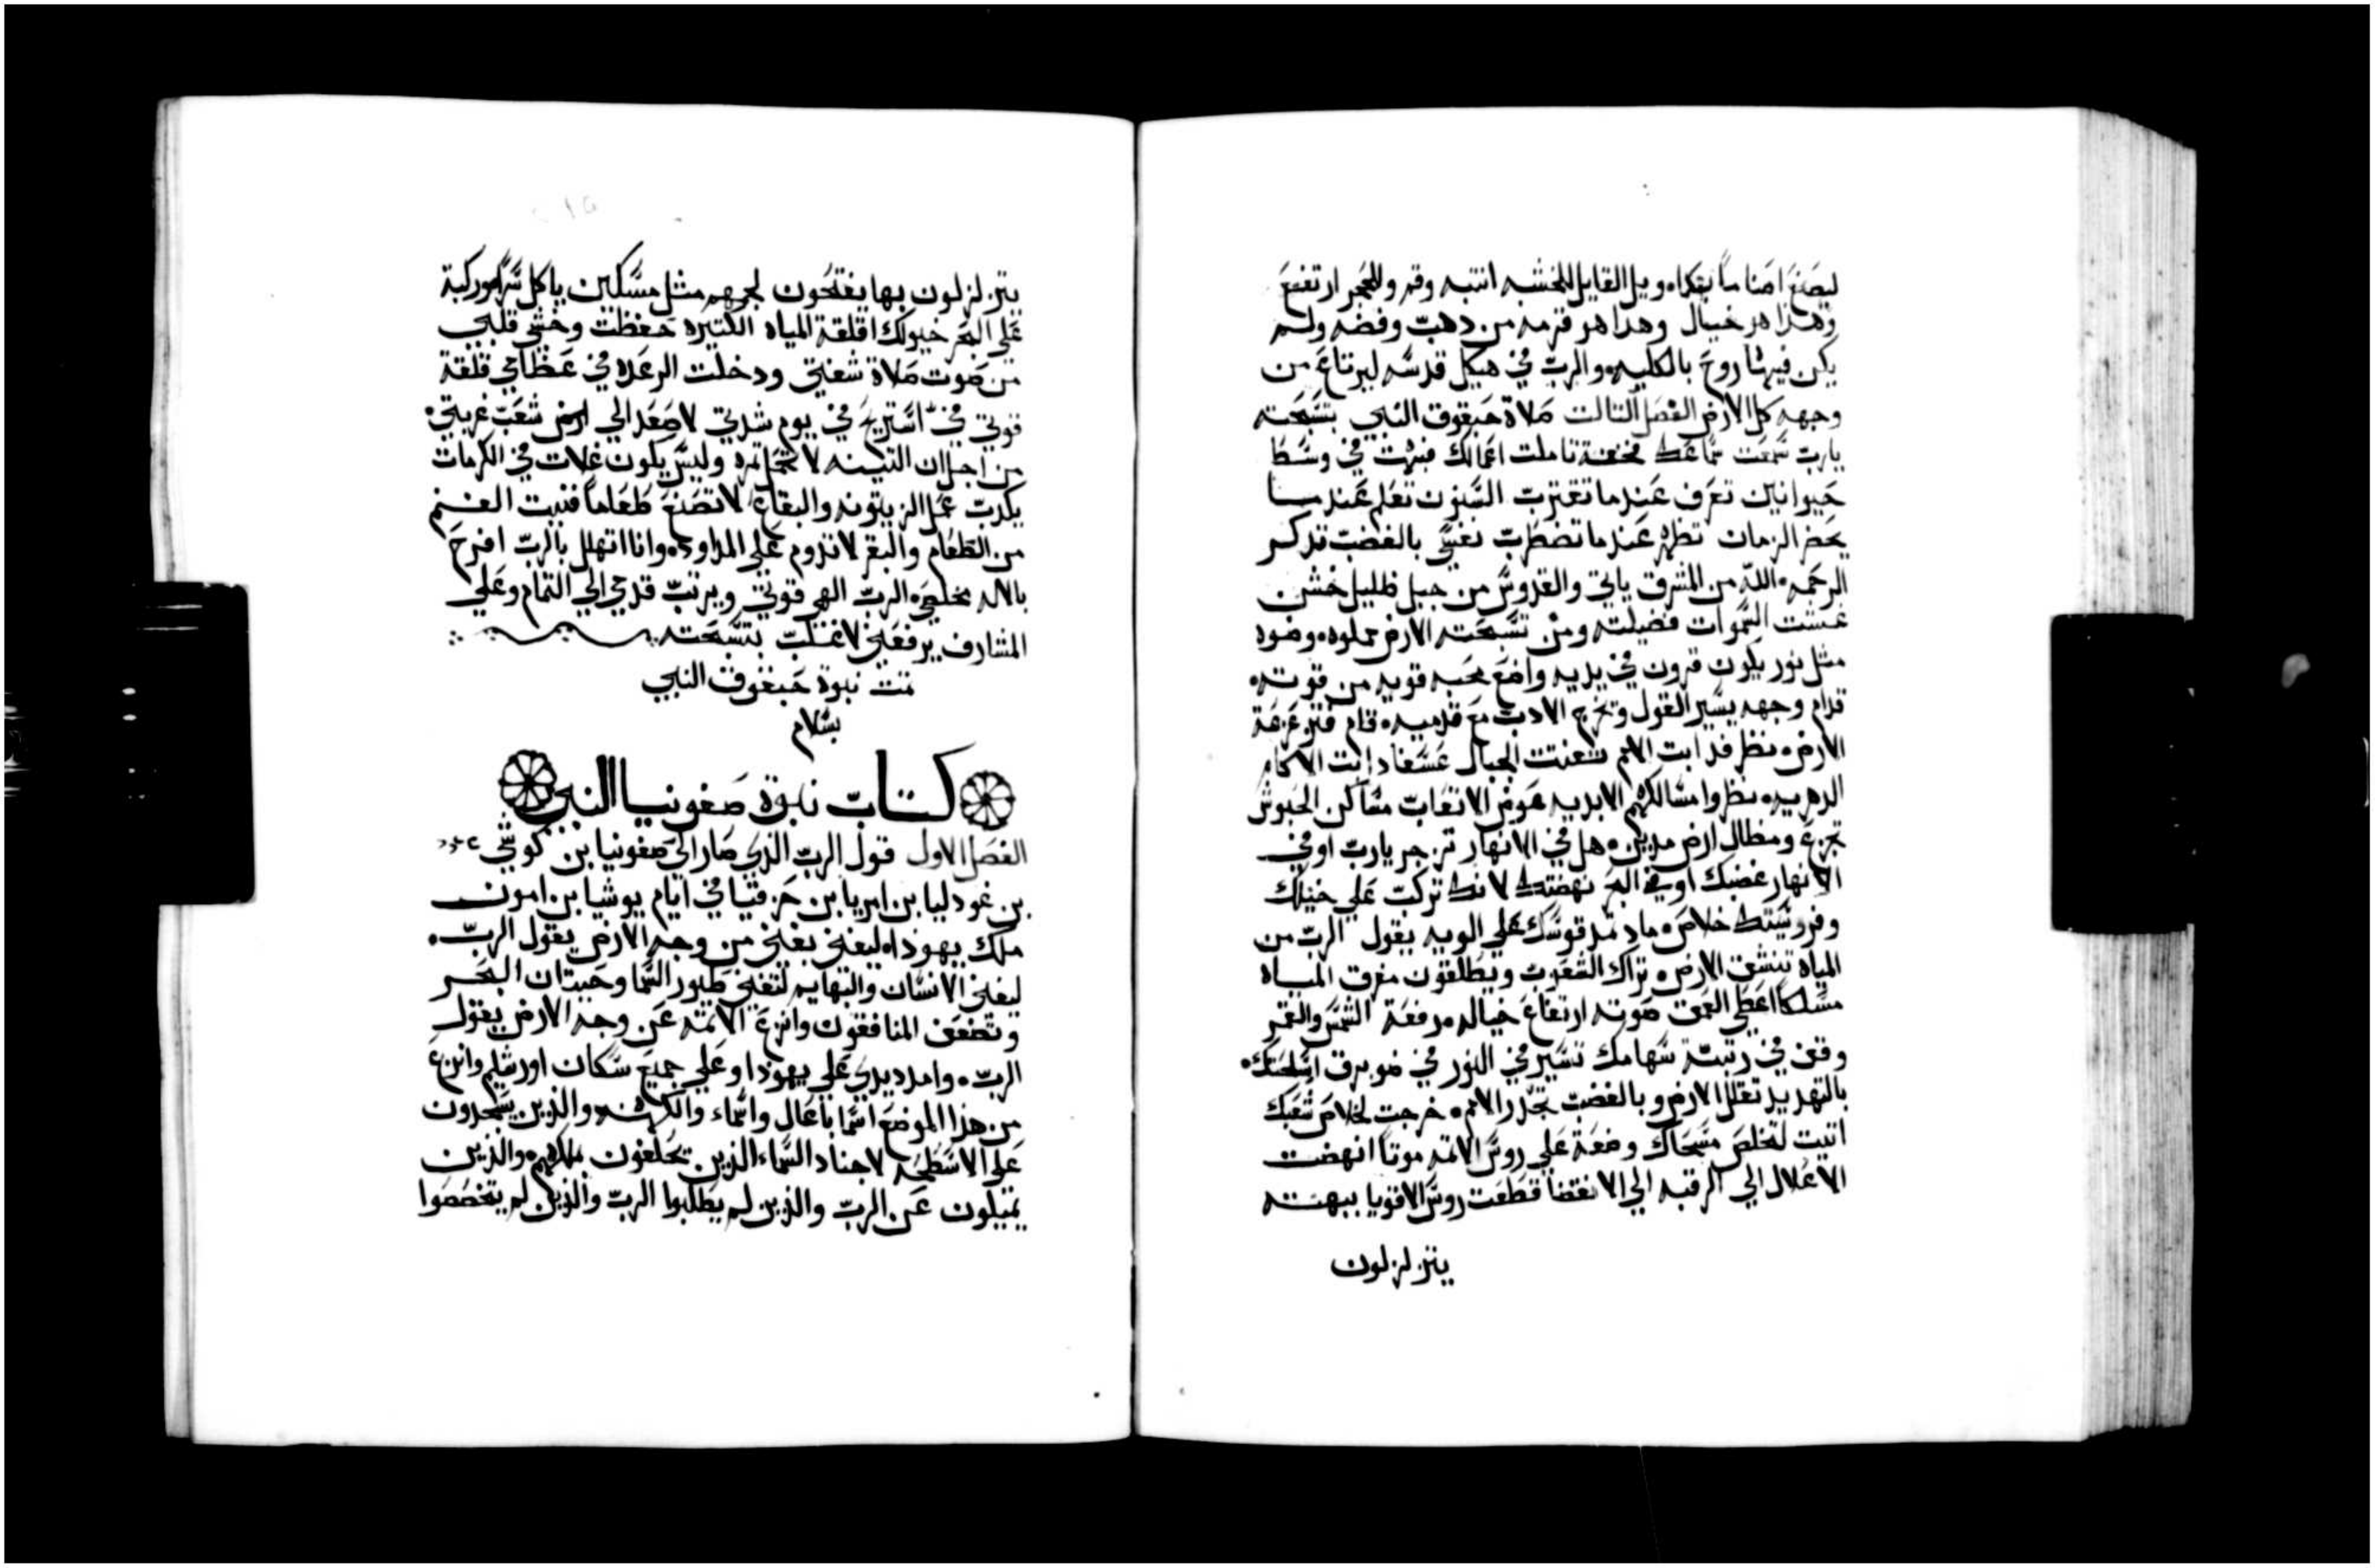 ليصنع اصناما بتكاء ويل القايل للخشبه انتبه وقم وللحجر ارتفع
وهدا هو خيال وهدا هو قرمه من دهب وفضه ولم
يكن فيهما روح بالكليه والرب في هيكل قدسه ليرتاع من
وجهه كل الارض الفصل التالت صلاة حبقوق النبي بتسبحته
يارب سمعت سماعك فخفت تاملت اعمالك فبهت في وسط
حيوانين تعرف عندما تقترب السنون تعلم عندما
يحضر الزمان تظهر عندما تضطرب نفسي بالغضب تدكر
الرحمه الله من المشرق ياتي والقدوس من جبل ظليل خشن
غشت السموات فضيلته ومن تسبحته الارض مملوه وضوه
مثل نور يكون قرون في يديه واضع محبه قويه من قوته
قدام وجهه يسير القول وتخرج الادب مع قدميه قام فتزعزعة
الارض نظر فدابت الامم شعنتت الجبال عسفا دابت الاكام
الدهريه نظروا مسالكهم الابديه عوض الاتعاب مساكن الحبوش
تجزع ومظال ارض مدين هل في الانهار تزجر يارب او في
الانهار غضبك او في البحر نهضتك لانك تركب علي خيلك
وفروسيتك خلاص مادتمد قوسك علي الويه يقول الرب من
المياه تنشق الارض تراك الشعوب ويطلقون مفرق المياه
مسلكا اعطي العمق صوته ارتفاع خياله مرفعة الشمس والقمر
وقف في رتبته سهامك تسير في النور في ضو برق اسلحتك
بالتهديد تقلل الارض وبالغضب تحدر الامم خرجت لخلاص شعبك
اتيت لتخلص مسحاك وضعة علي روس الاتمه موتا انهضت
الاغلال الي الرقبه الي الانقضا قطعت روس الاقويا ببهته
ينزلزلون
ينزلزلون بها يفتحون لجمهم مثل مسكين ياكل سرا وركبة
علي البحر خيولك اقلقة المياه الكتيره حفظت وخشي قلبي
من صوت صلاة شفتي ودخلت الرعده في عظامي قلقة
قوتي في استريح في يوم شدتي لاصعد الي ارض شعب غربتي
من اجل ان التينه لا تحمل تمره وليس يكون غلات في الكرمات
يكدب عمل الزيتونه والبقاع لا تصنع طعاما فنيت الغنم
من الطعام والبقر لا تدوم علي المداود وانا اتهلل بالرب افرح
بالاله مخلصي الرب الهي قوتي ويرتب قدمي الي التمام وعلي
المشارف يرفعني لاغلب بتسبحته
تمت نبوة حبقوق النبي
بسلام
كتاب نبوة صفونيا النبي
الفصل الاول قول الرب الدي صار الي صفونيا بن كوشي
بن غودليا بن امريا بن حزقيا في ايام يوشيا بن امون
ملك يهودا ليفني يفني من وجه الارض يقول الرب
ليفني الانسان والبهايم لتفني طيور السما وحيتان البحر
وتضعف المنافقون وانزع الاتمه عن وجه الارض يقول
الرب وامد يدي علي يهودا وعلي جميع سكان اورشليم وانزع
من هدا الموضع اسما باعال واسماء والكهنه والدين يسجدون
علي الاسطحه لاجناد السماء الدين يحلفون بملكهم والدين
يميلون عن الرب والدين لم يطلبوا الرب والدين لم يتخصصوا